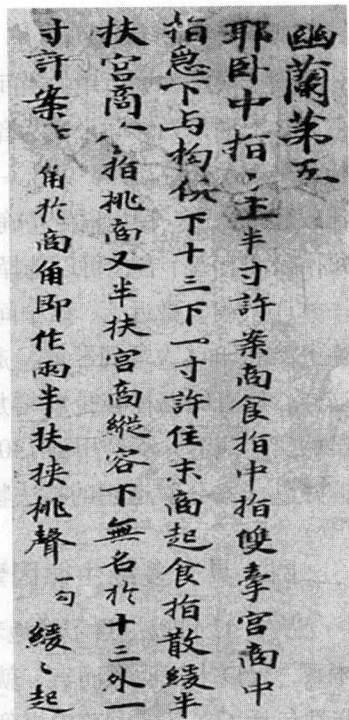 幽蘭第五
耶卧中指〻上半寸許案商食指中指雙牽宮商中
指急下与拘俱下十三下一寸許住末商起食指散緩半
扶宮商食〻指挑商又半扶宮商縱容下無名於十三外一
寸許案〻角於商角即作兩半扶挾挑聲 一句 緩〻起